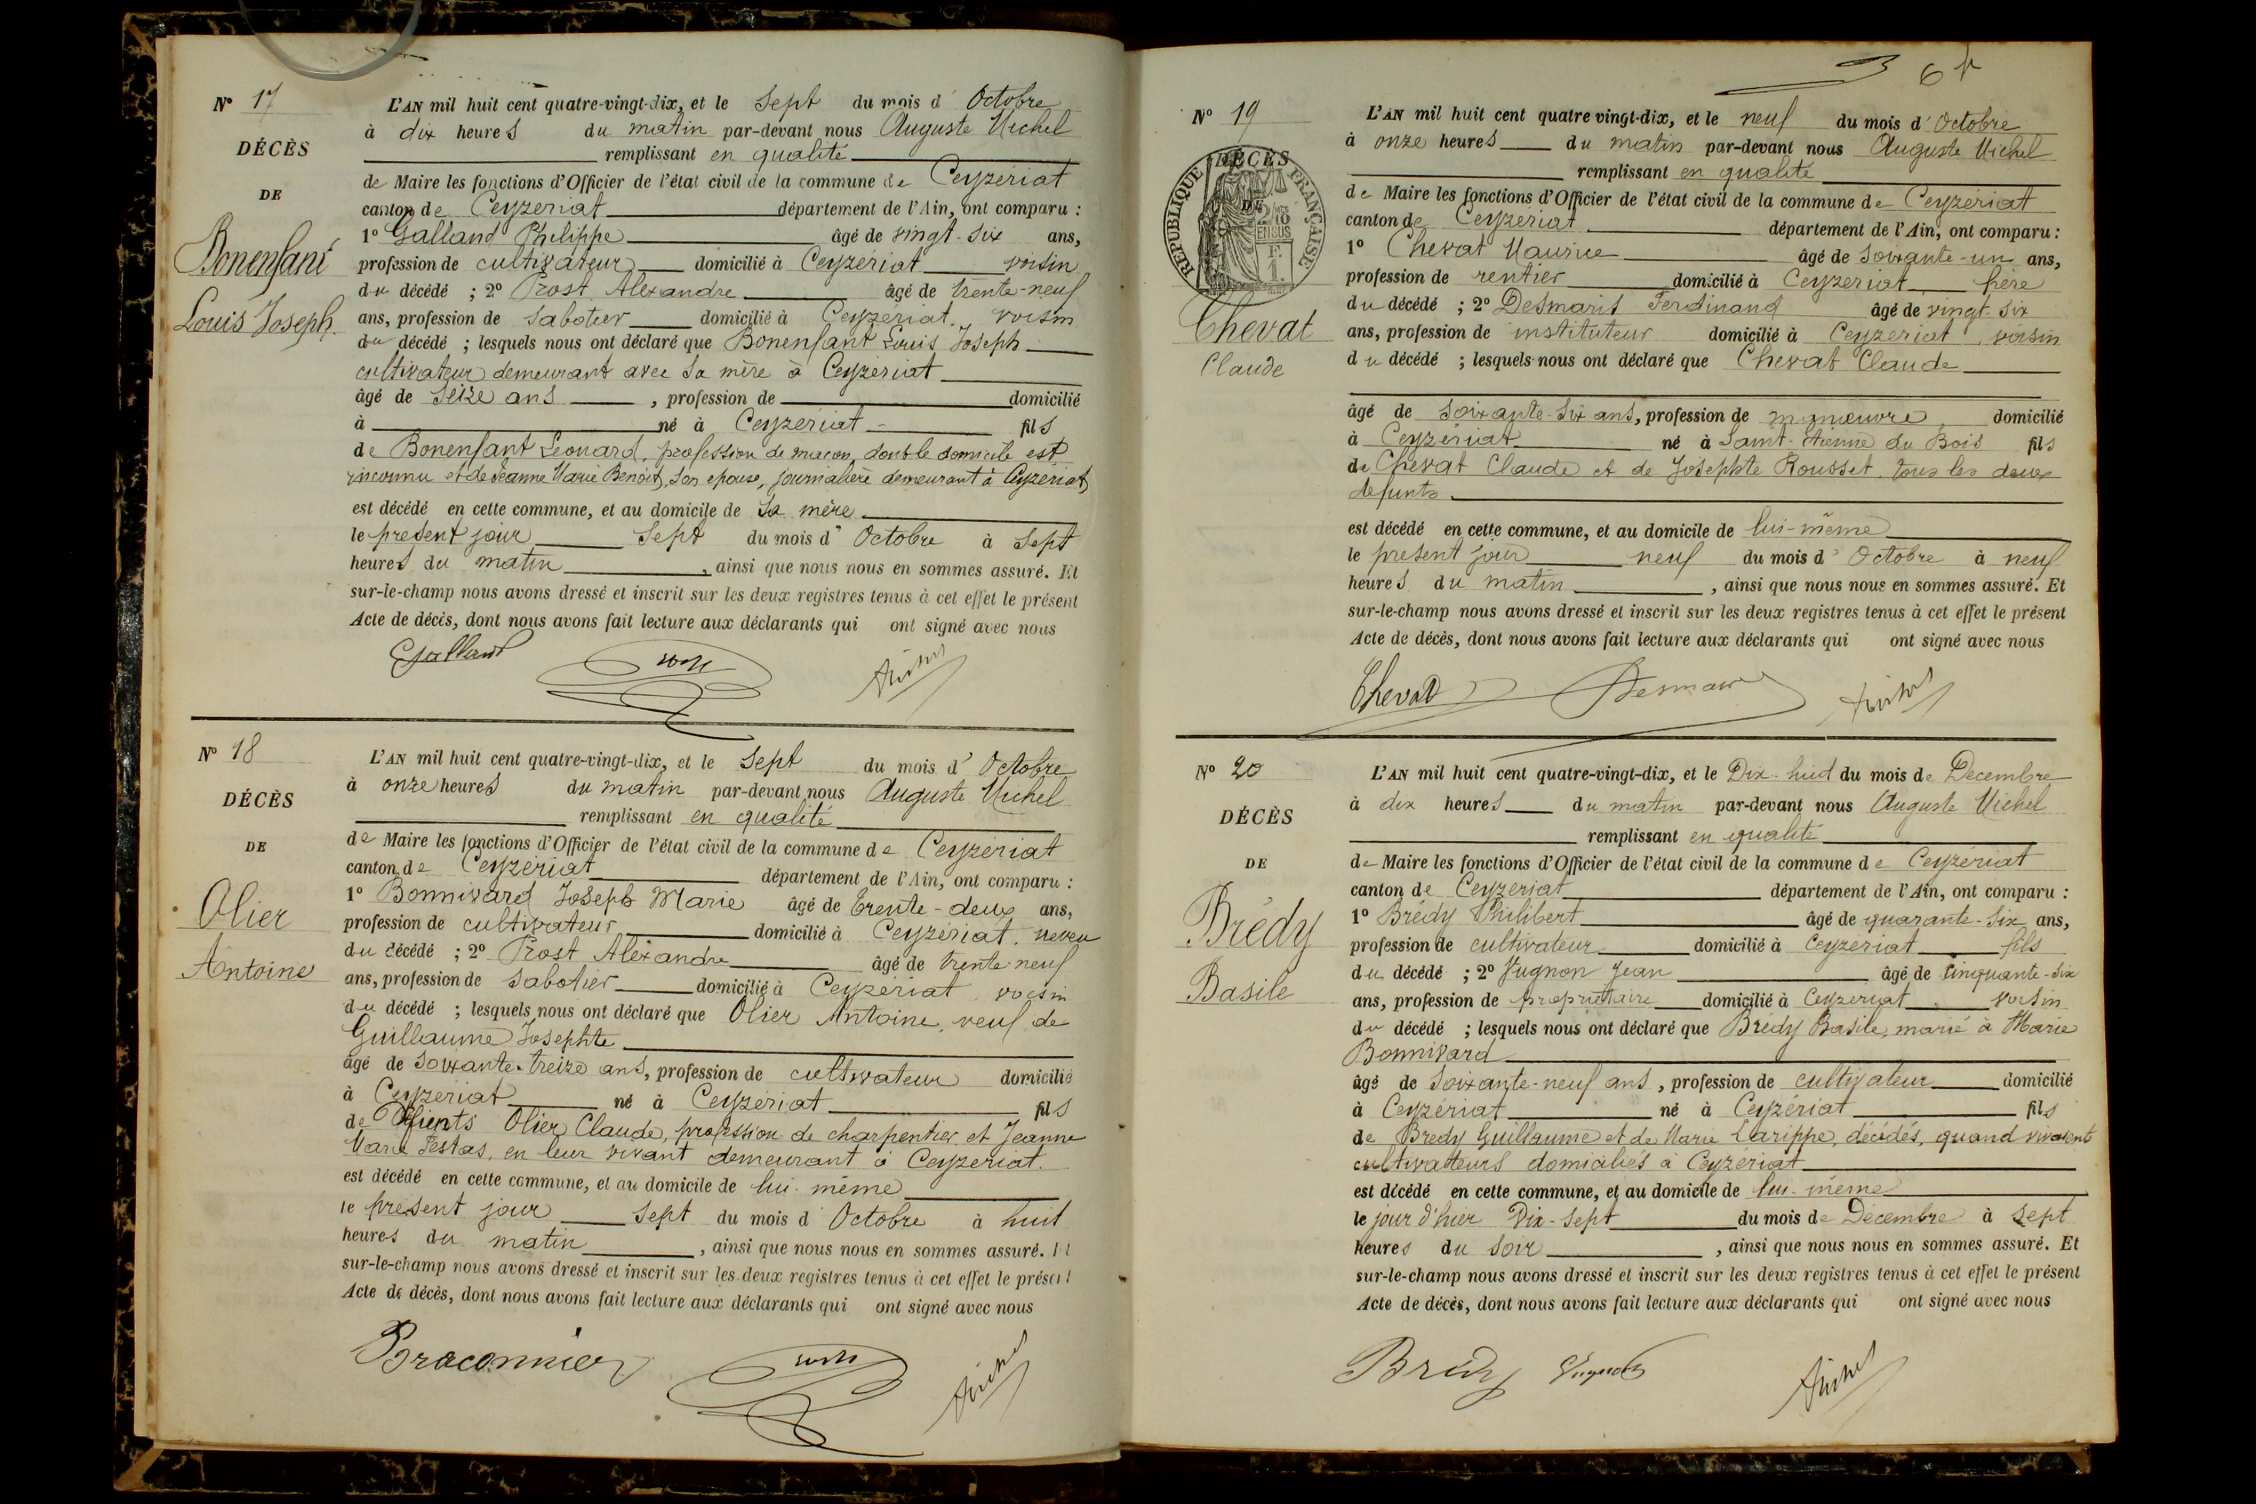 N° 17
DÉCÈS
DE
Bonenfant
Louis Joseph.
L'AN mil huit cent quatre-vingt-dix, et le Sept du mois d'Octobre
à dix heures du matin par-devant nous Auguste Michel
remplissant en qualité
de Maire les fonctions d'Officier de l'état civil de la commune de Ceyzériat
canton de Ceyzériat département de l'Ain, ont comparu :
1° Galland Philippe âgé de vingt-six ans,
profession de cultivateur domicilié à Ceyzériat voisin
du décédé ; 2° Prost Alexandre âgé de trente-neuf
ans, profession de sabotier domicilié à Ceyzériat. voisin
du décédé ; lesquels nous ont déclaré que Bonenfant Louis Joseph
cultivateur demeurant avec sa mère à Ceyzériat
âgé de seize ans , profession de domicilié
à né à Ceyzériat fils
de Bonenfant Léonard, profession de maçon, dont le domicile est
inconnu et de Jeanne Marie Benoit, son épouse, journalière demeurant à Ceyzériat
est décédé en cette commune, et au domicile de sa mère
le présent jour Sept du mois d'Octobre à sept
heures du matin , ainsi que nous nous en sommes assuré. Et
sur-le-champ nous avons dressé et inscrit sur les deux registres tenus à cet effet le présent
Acte de décès, dont nous avons fait lecture aux déclarants qui ont signé avec nous
Galland
N° 18
DÉCÈS
DE
Olier
Antoine
L'AN mil huit cent quatre-vingt-dix, et le sept du mois d'Octobre
à onze heures du matin par-devant nous Auguste Michel
remplissant en qualité
de Maire les fonctions d'Officier de l'état civil de la commune de Ceyzériat
canton de Ceyzériat département de l'Ain, ont comparu :
1° Bonnivard Joseph Marie âgé de trente-deux ans,
profession de cultivateur domicilié à Ceyzériat. neveu
du décédé ; 2° Prost Alexandre âgé de trente-neuf
ans, profession de sabotier domicilié à Ceyzériat voisin
du décédé ; lesquels nous ont déclaré que Olier Antoine, veuf de
Guillaume Josephte
âgé de soixante-treize ans, profession de cultivateur domicilié
à Ceyzériat né à Ceyzériat fils
de Olier Claude, profession de charpentier et Jeanne
Marie Festas, en leur vivant demeurant à Ceyzériat.
est décédé en cette commune, et au domicile de lui-même
le présent jour sept du mois d'Octobre à huit
heures du matin , ainsi que nous nous en sommes assuré. Et
sur-le-champ nous avons dressé et inscrit sur les deux registres tenus à cet effet le présent
Acte de décès, dont nous avons fait lecture aux déclarants qui ont signé avec nous
Braconnier
6
N° 19
RÉPUBLIQUE FRANÇAISE
DÉCÈS
DE
2/10 EN SUS
F. 1.
Chevat
Claude
L'AN mil huit cent quatre vingt-dix, et le neuf du mois d'Octobre
à onze heures du matin par-devant nous Auguste Michel
remplissant en qualité
de Maire les fonctions d'Officier de l'état civil de la commune de Ceyzériat
canton de Ceyzériat département de l'Ain, ont comparu :
1° Chevat Maurice âgé de soixante-un ans,
profession de rentier domicilié à Ceyzériat frère
du décédé ; 2° Desmaris Ferdinand âgé de vingt-six
ans, profession de instituteur domicilié à Ceyzériat, voisin
du décédé ; lesquels nous ont déclaré que Chevat Claude
âgé de soixante-six ans, profession de manœuvre domicilié
à Ceyzériat né à Saint-Etienne du Bois fils
de Chevat Claude et de Josephte Rousset, tous les deux
défunts
est décédé en cette commune, et au domicile de lui-même
le présent jour neuf du mois d'Octobre à neuf
heures du matin , ainsi que nous nous en sommes assuré. Et
sur-le-champ nous avons dressé et inscrit sur les deux registres tenus à cet effet le présent
Acte de décès, dont nous avons fait lecture aux déclarants qui ont signé avec nous
Chevat
N° 20
DÉCÈS
DE
Brédy
Basile
L'AN mil huit cent quatre-vingt-dix, et le Dix-huit du mois de Décembre
à dix heures du matin par-devant nous Auguste Michel
remplissant en qualité
de Maire les fonctions d'Officier de l'état civil de la commune de Ceyzériat
canton de Ceyzériat département de l'Ain, ont comparu :
1° Brédy Philibert âgé de quarante-six ans,
profession de cultivateur domicilié à Ceyzériat fils
du décédé ; 2° Vugnon Jean âgé de cinquante-six
ans, profession de propriétaire domicilié à Ceyzériat voisin
du décédé ; lesquels nous ont déclaré que Brédy Basile, marié à Marie
Bonnivard
âgé de soixante-neuf ans, profession de cultivateur domicilié
à Ceyzériat né à Ceyzériat fils
de Brédy Guillaume et de Marie Larippe, décédés, quand vivaient
cultivateurs domiciliés à Ceyzériat
est décédé en cette commune, et au domicile de lui-même
le jour d'hier Dix-sept du mois de Décembre à sept
heures du soir , ainsi que nous nous en sommes assuré. Et
sur-le-champ nous avons dressé et inscrit sur les deux registres tenus à cet effet le présent
Acte de décès, dont nous avons fait lecture aux déclarants qui ont signé avec nous
Brédy Vugnon